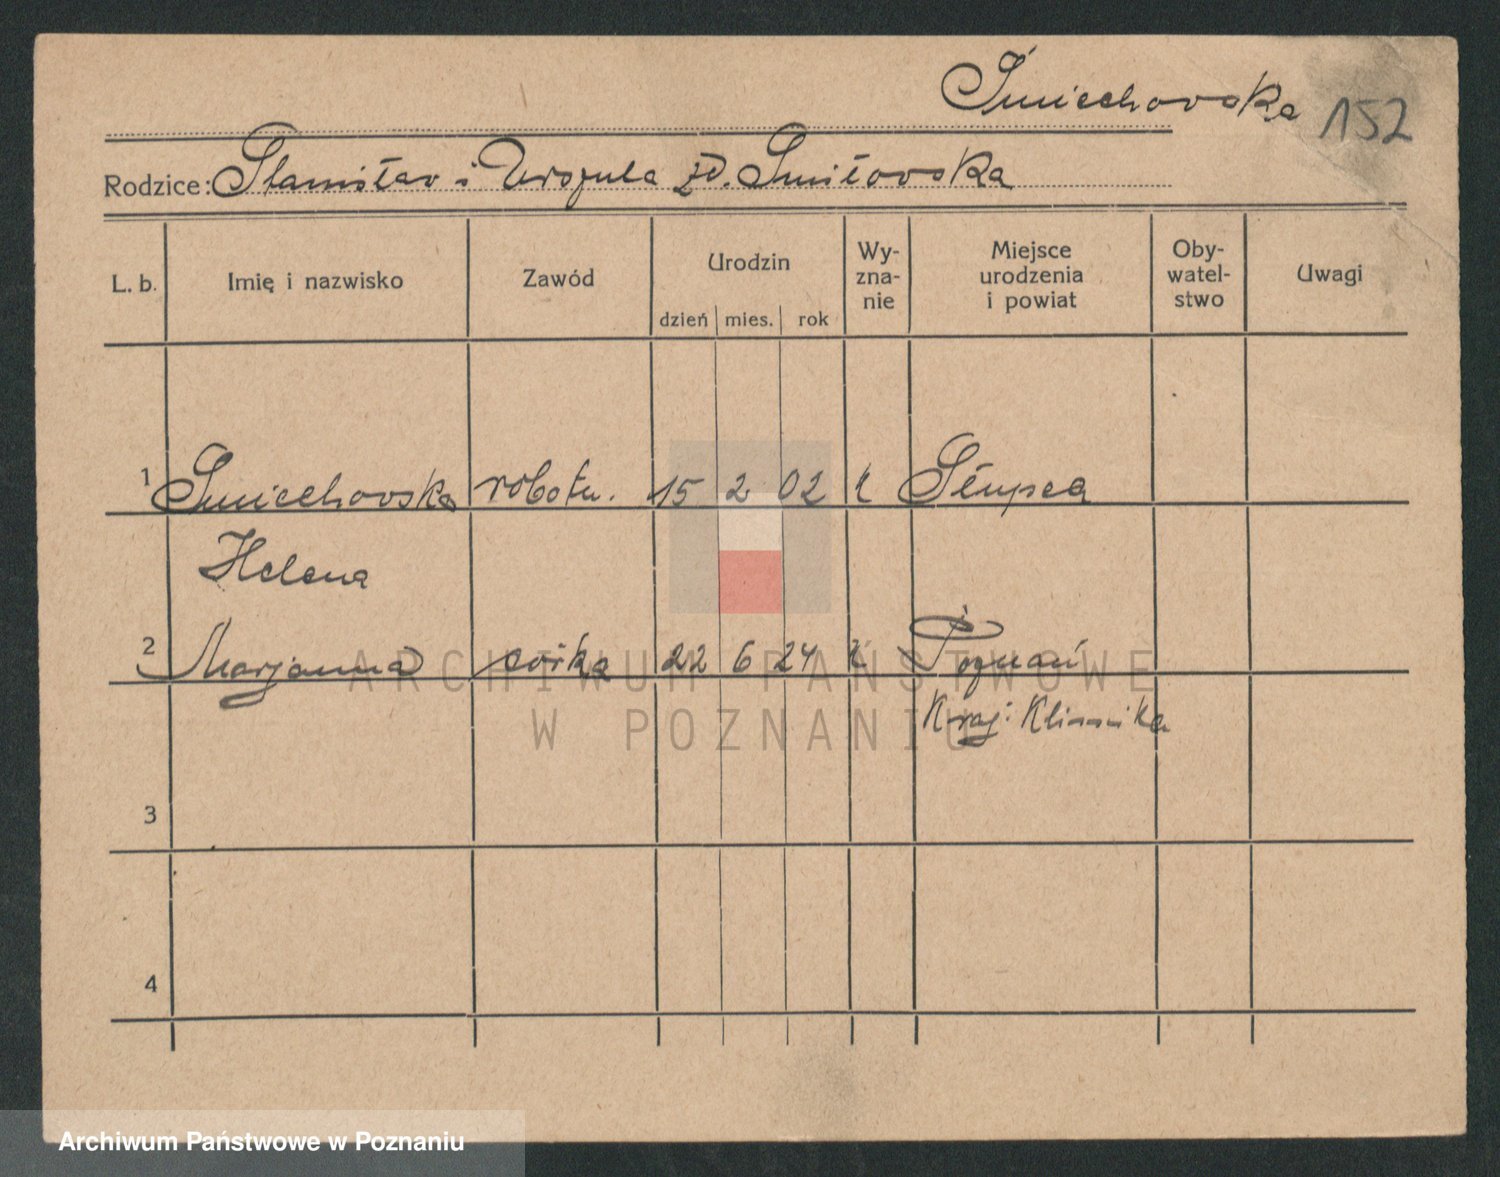 Śmiechowska 152
Rodzice: Stanisław i Urszula zd. Smiłowska
L. b. Imię i nazwisko Zawód Urodzin Wy-zna-nie Miejsce urodzenia i powiat Oby-watel-stwo Uwagi
dzień mies. rok
1 Smiechowska robotn. 15 2 02 k Słupca
Helena
2 Marjanna córka 22 6 24 k Poznań
Kraj. Klinika
3
4
ARCHIWUM PAŃSTWOWE
W POZNANIU
Archiwum Państwowe w Poznaniu